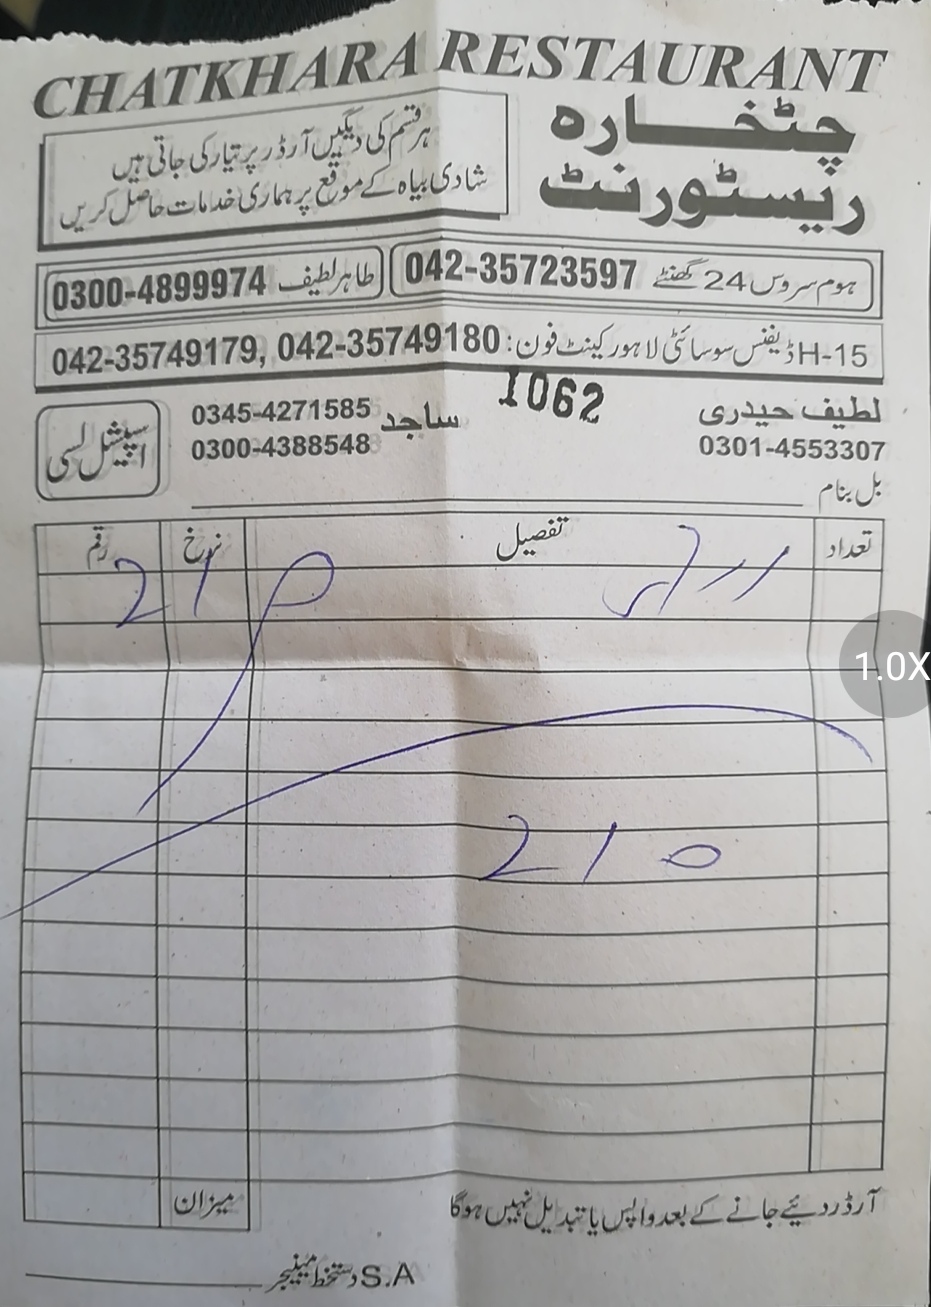 CHATKHARA RESTAURANT
چٹخارہ
ریسٹورنٹ
ہر قسم کی دیگیں آرڈر پر تیار کی جاتی ہیں
شادی بیاہ کے موقع پر ہماری خدمات حاصل کریں
ہوم سروس 24 گھنٹے 042-35723597
طاہر لطیف 0300-4899974
H-15 ڈیفنس سوسائٹی لاہور کینٹ فون: 042-35749180 ,042-35749179
1062
لطیف حیدری
0301-4553307
ساجد
0345-4271585
0300-4388548
اسپیشل لسی
بل بنام
تعداد تفصیل نرخ رقم
210
210
میزان
آرڈر دیئے جانے کے بعد واپس یا تبدیل نہیں ہوگا
S.A دستخط مینیجر
1.0X